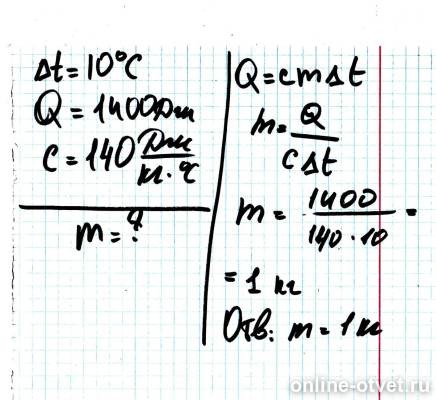 Δt = 10°C
Q = 1400 Дж
c = 140 Дж/кг·°C
m = ?
Q = cmΔt
m = Q/cΔt
m = 1400/140·10 =
= 1 кг
Отв: m = 1 кг
online-otvet.ru